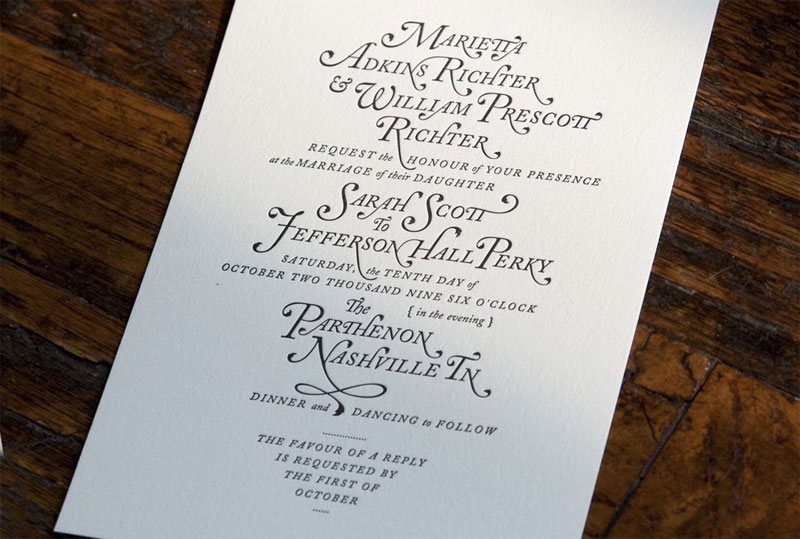 MARIETTA
ADKINS RICHTER
& WILLIAM PRESCOTT
RICHTER
REQUEST the HONOUR of YOUR PRESENCE
at the MARRIAGE of their DAUGHTER
SARAH SCOTT
To
JEFFERSON HALL PERKY
SATURDAY, the TENTH DAY of
OCTOBER TWO THOUSAND NINE SIX O'CLOCK
{ in the evening }
The
PARTHENON
NASHVILLE TN
DINNER and DANCING to FOLLOW
THE FAVOUR OF A REPLY
IS REQUESTED BY
THE FIRST OF
OCTOBER